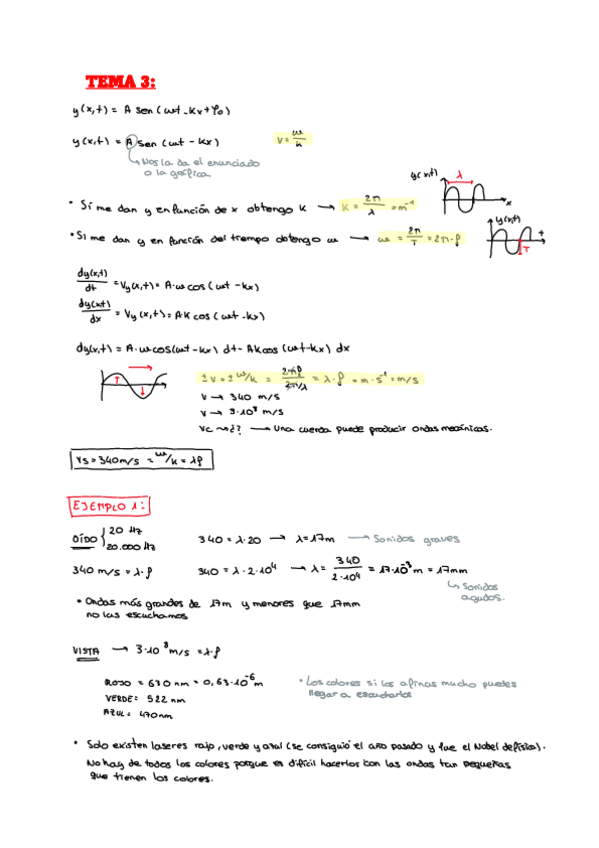 TEMA 3:
y(x,t) = A sen (ωt - kx + φ₀)
y(x,t) = A sen (ωt - kx) v = ω/k
↳ Nos la da el enunciado
o la gráfica
y(x,t) λ x
• Si me dan y en función de x obtengo k → k = 2π/λ = m⁻¹
y(x,t) t T
• Si me dan y en función del tiempo obtengo ω → ω = 2π/T = 2π·f
dy(x,t)/dt = Vy(x,t) = A·ω cos (ωt - kx)
dy(x,t)/dx = Vy (x,t) = A·k cos (ωt - kx)
dy(x,t) = A·ω cos(ωt - kx) dt - Ak cos (ωt - kx) dx
T ± v = ± ω/k = 2πf/2π/λ = λ·f = m·s⁻¹ = m/s
v → 340 m/s
v → 3·10⁸ m/s
Vc → ¿? → Una cuerda puede producir ondas mecánicas.
Vs = 340 m/s = ω/k = λf
EJEMPLO 1:
OÍDO { 20 Hz
20.000 Hz
340 = λ·20 → λ = 17m → Sonidos graves
340 m/s = λ·f 340 = λ·2·10⁴ → λ = 340/2·10⁴ = 17·10⁻³ m = 17mm
↳ Sonidos
agudos.
• Ondas más grandes de 17m y menores que 17mm
no las escuchamos
VISTA → 3·10⁸ m/s = λ·f
ROJO = 630 nm = 0,63·10⁻⁶ m
VERDE = 522 nm
AZUL = 470 nm
• Los colores si los afinas mucho puedes
llegar a escucharlos
• Solo existen laseres rojo, verde y azul (se consiguió el año pasado y fue el Nobel de física).
No hay de todos los colores porque es difícil hacerlos con las ondas tan pequeñas
que tienen los colores.